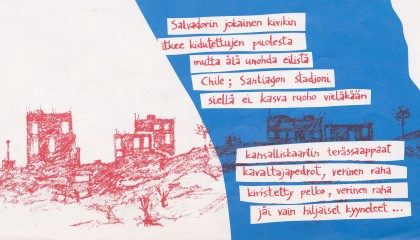 Salvadorin jokainen kivikin
itkee kidutettujen puolesta
mutta älä unohda eilistä
Chile; Santiagon stadioni
siellä ei kasva ruoho vieläkään
kansalliskaartin terässaappaat
kavaltajapedrot, verinen raha
kiristetty pelko, verinen raha
jäi vain hiljaiset kyyneleet ...